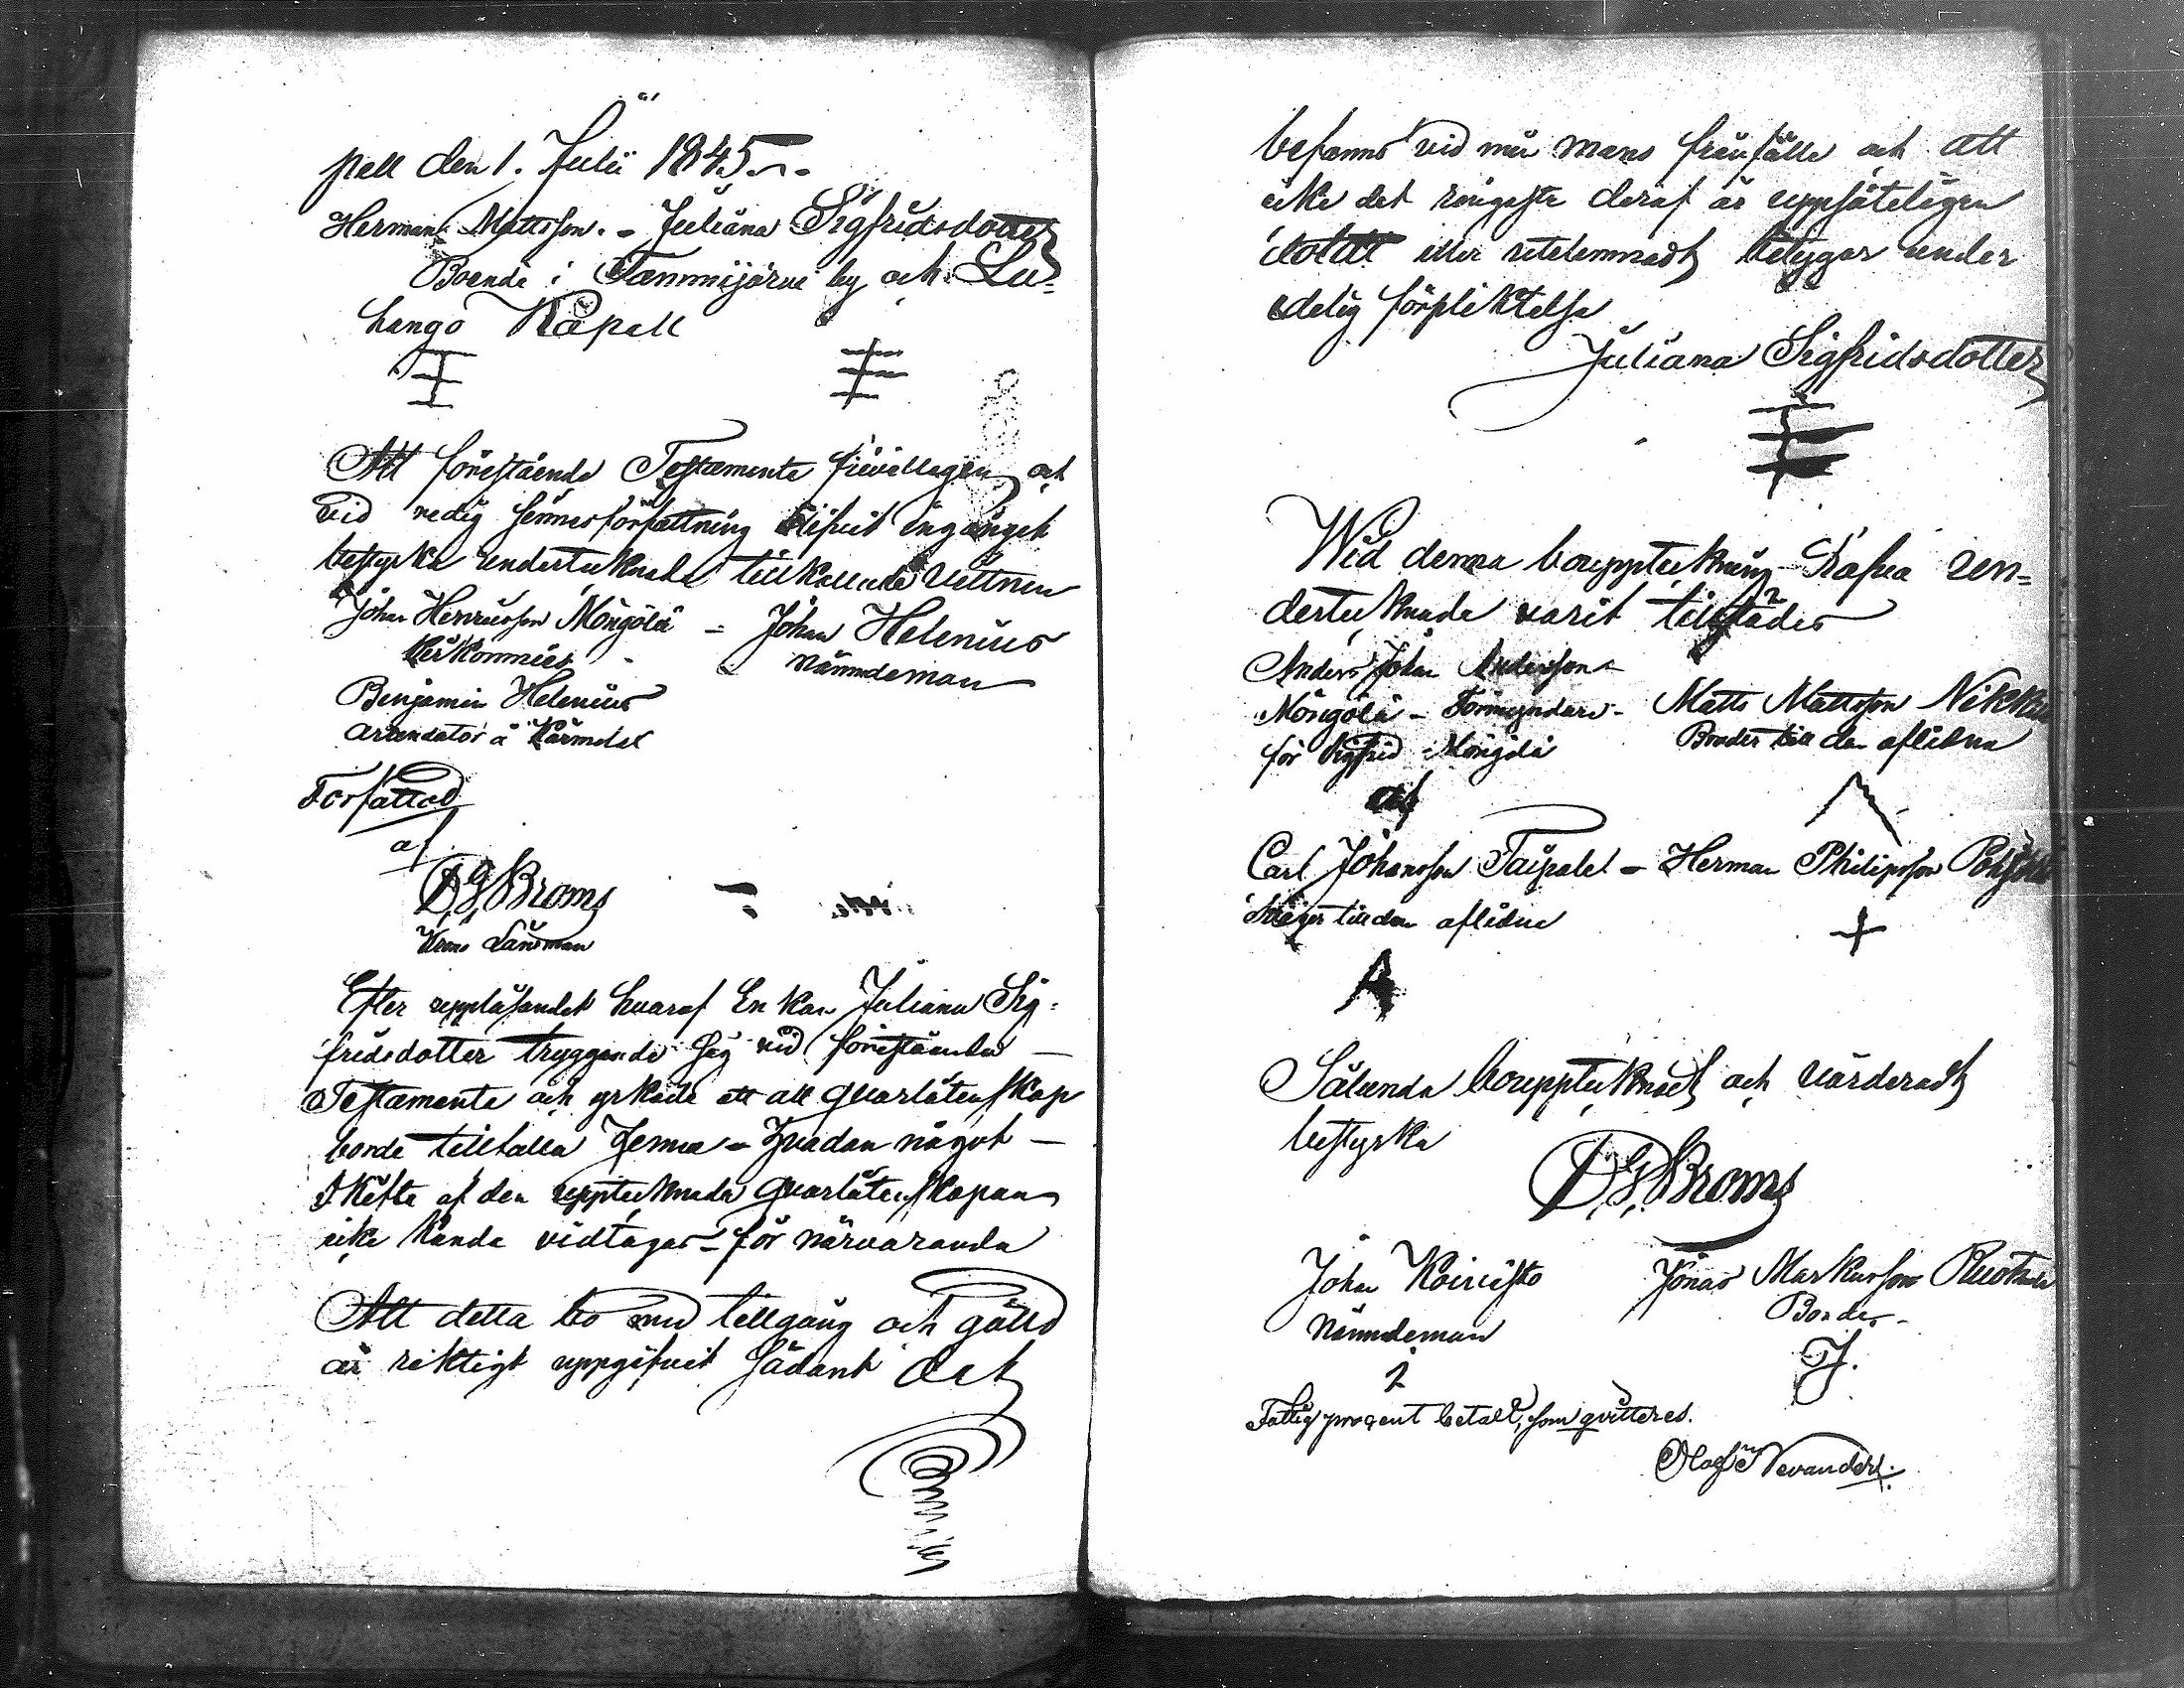 pell den 1. Julii 1845.
Herman Mattsson. - Juliana Sigfridsdotter
Boende i Tammijärvi by och Lu=
hango Kapell
Att förestående Testamente frivilligen och
vid redig sinnesförfattning blifvit ingånget
bestyrka undertecknade tillkallade Vittnen
Johan Henricsson Mongola = Johan Helenius
Nämndeman
Benjamin Helenius
arrendator å Kärmelax
Författad
af
D. G. Broms
Krono Länsman
Efter uppläsandet hvaraf Enkan Juliana Sig=
fridsdotter tryggande sig vid förestående
Testamente och yrkade att all qvarlåtenskap
borde tillfalla henne - hvadan något
Skifte af den upptecknade qvarlåtenskapen
icke kunde vidtagas - för närvarande
Att detta bo med tillgång och gäld
är riktigt uppgifvit sådant det
befanns vid min mans frånfälle och att
icke det ringaste deraf är uppsåteligen
doldt eller utelemnadt betygar under
edelig förpliktelse
Juliana Sigfridsdotter
Wid denna bouppteckning hafva un=
dertecknade varit tillstädes
Anders Johan Andersson
Mongola - Förmyndare - Matts Mattsson Nikku
för Sigfrid Mongola Broder till den aflidna
Carl Johansson Taipale - Herman Philipsson
Svåger till den aflidne
Sålunda boupptecknadt och värderadt
bestyrka
D. G. Broms
Johan Koivisto Jonas Markusson
Nämndeman Bonde
J.
Fattig procent betalt, som qvitteres.
Olof Nevander.